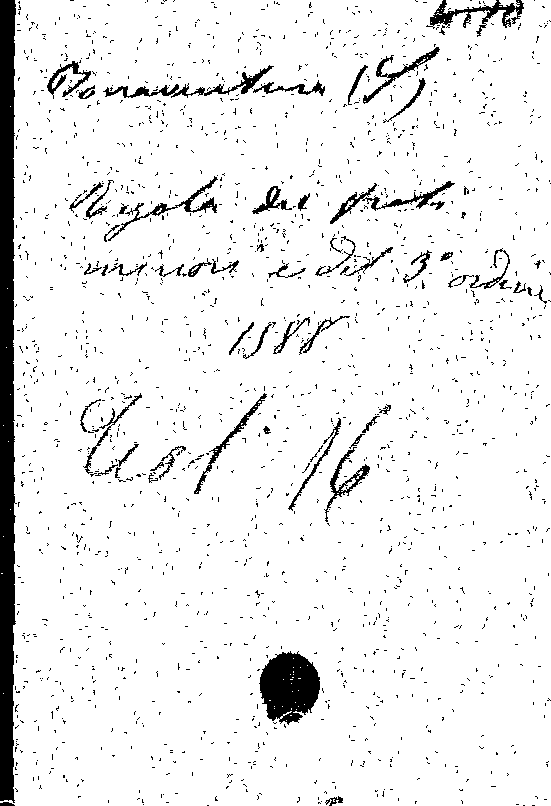 Bonaventura (S)
Regola dei frati
minori e del 3° ordine
1588
16